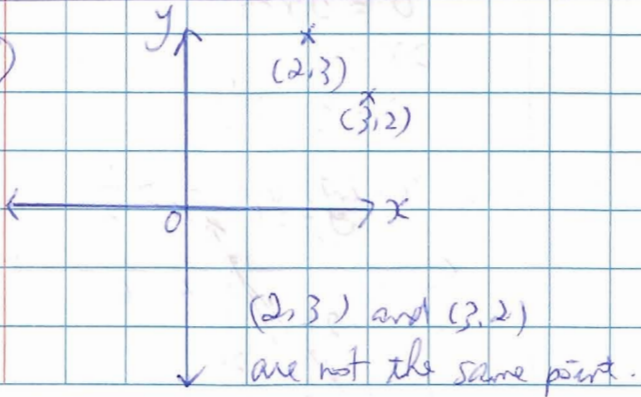 y
(2,3)
(3,2)
0 x
(2,3) and (3,2)
are not the same point.